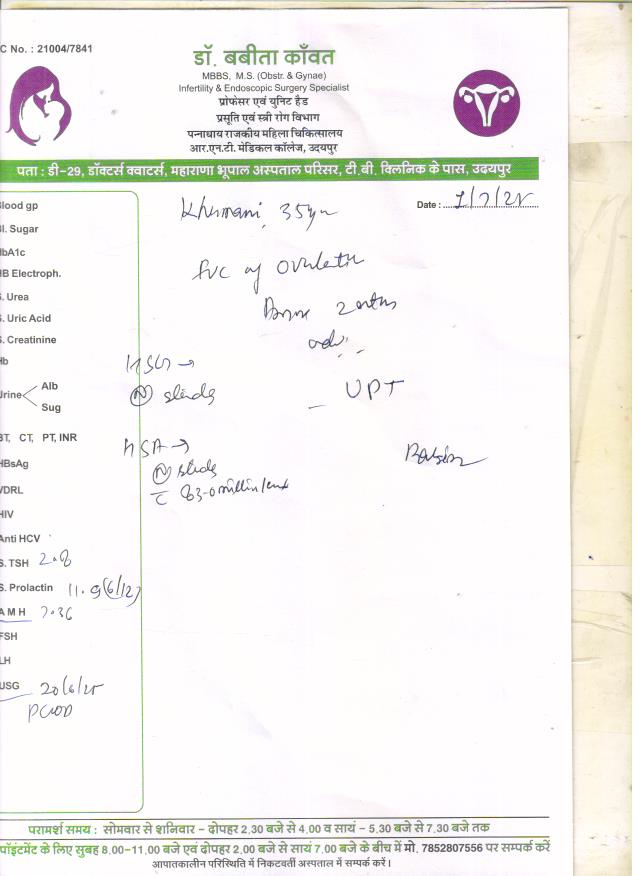 C No. : 21004/7841
डॉ. बबीता काँवत
MBBS, M.S. (Obstr. & Gynae)
Infertility & Endoscopic Surgery Specialist
प्रोफेसर एवं युनिट हैड
प्रसूति एवं स्त्री रोग विभाग
पन्नाधाय राजकीय महिला चिकित्सालय
आर.एन.टी. मेडिकल कॉलेज, उदयपुर
पता : डी-29, डॉक्टर्स क्वाटर्स, महाराणा भूपाल अस्पताल परिसर, टी.बी. क्लिनिक के पास, उदयपुर
Date :
35yr
UPT
lood gp
l. Sugar
bA1c
B Electroph.
. Urea
. Uric Acid
. Creatinine
b
rine Alb
Sug
T, CT, PT, INR
BsAg
DRL
IV
nti HCV
S. TSH 2.8
S. Prolactin 11.9 (6/12)
A M H 7.36
FSH
LH
USG 20/6/25
PCOD
HSG →
(N)
HSA →
(N)
परामर्श समय : सोमवार से शनिवार - दोपहर 2.30 बजे से 4.00 व सायं - 5.30 बजे से 7.30 बजे तक
पॉइंटमेंट के लिए सुबह 8.00-11.00 बजे एवं दोपहर 2.00 बजे से सायं 7.00 बजे के बीच में मो. 7852807556 पर सम्पर्क करें
आपातकालीन परिस्थिति में निकटवर्ती अस्पताल में सम्पर्क करें।